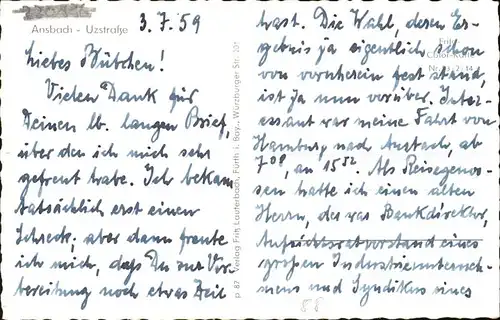 Ansbach - Uzstraße
3.7.59
Liebes Bübchen!
Vielen Dank für
Deinen lb. langen Brief,
über den ich mich sehr
gefreut habe. Ich bekam
tatsächlich erst einen
Schreck, aber dann freute
ich mich, daß Du zur Vor-
bereitung noch etwas Zeit
p 87 Verlag Fritz Lauterbach, Fürth i. Bay., Würzburger Str.
hast. Die Wahl, deren Er-
gebnis ja eigentlich schon
von vornherein fest stand,
ist ja nun vorüber. Inter-
essant war meine Fahrt von
Hamburg nach Ansbach, ab
7⁰⁹, an 15⁵². Als Reisegenos-
sen hatte ich einen alten
Herrn, der war Bankdirektor,
Aufsichtsratvorstand eines
großen Industrieunterneh-
mens und Syndikus eines
58